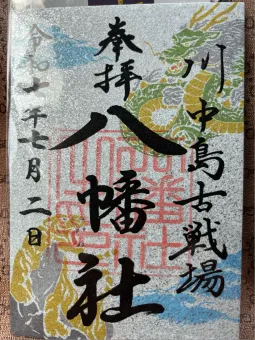 川中島古戦場
奉拝
八幡社
令和七年七月二日